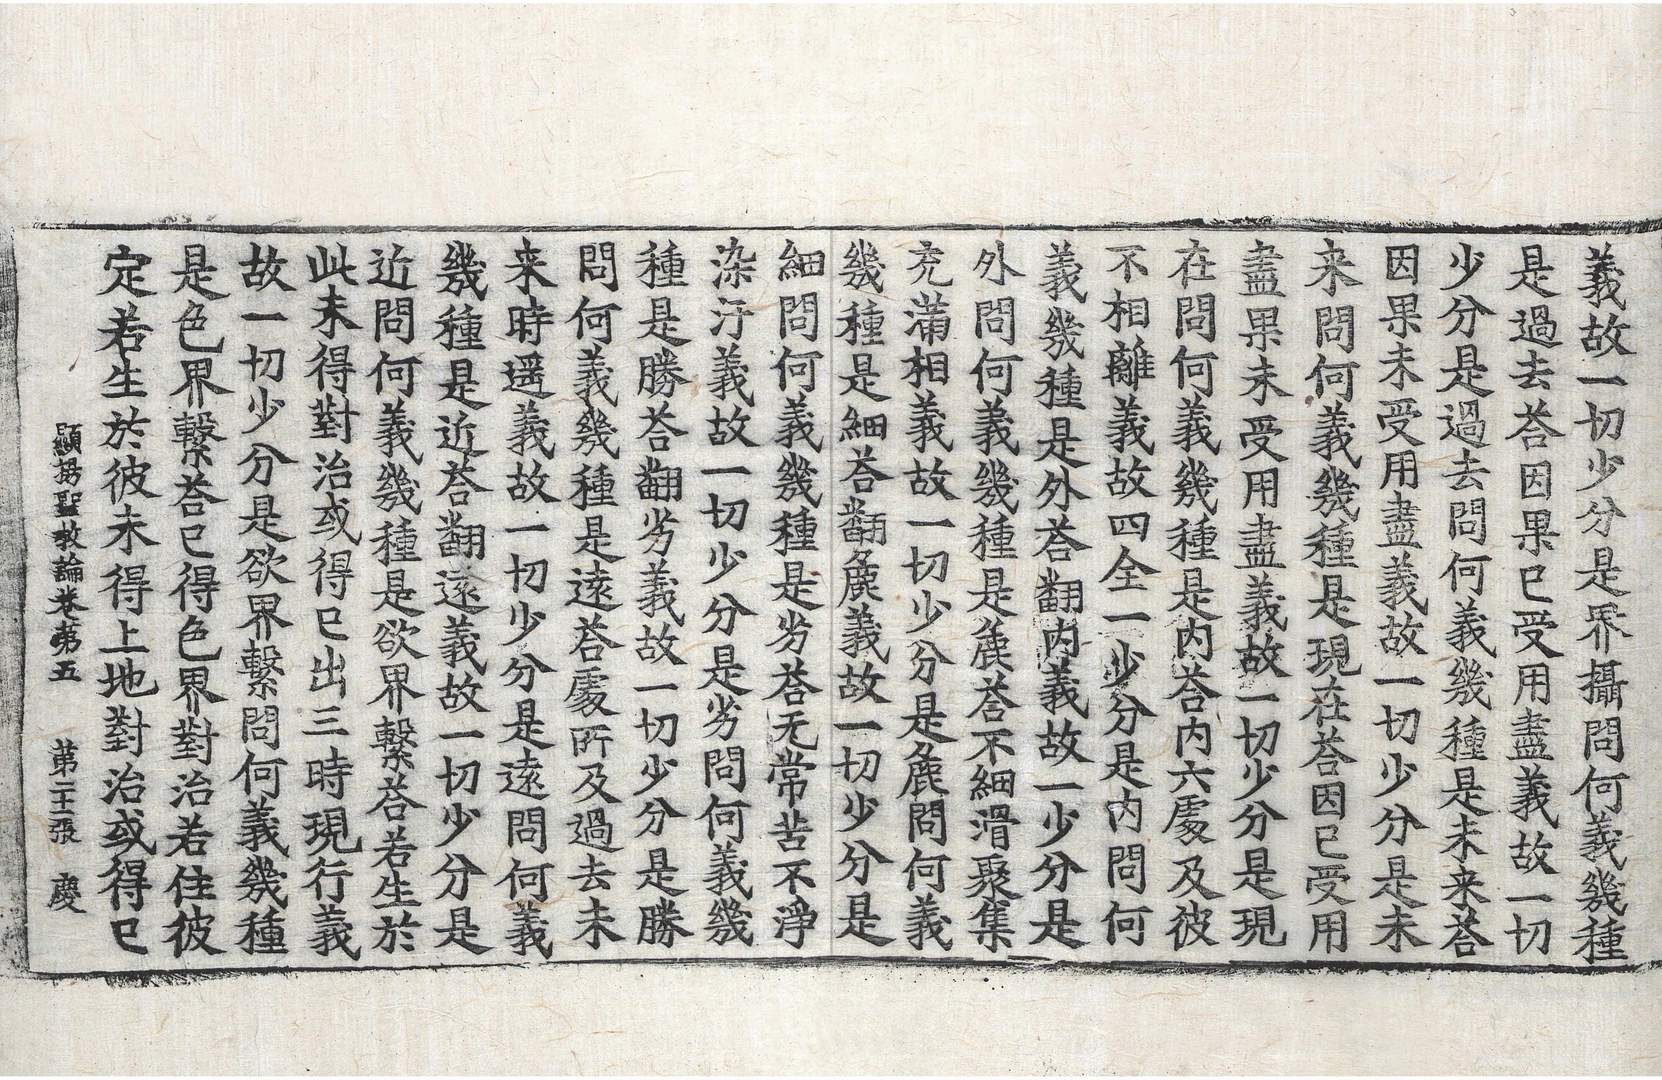 義故一切少分是界攝問何義幾種
是過去荅因果已受用盡義故一切
少分是過去問何義幾種是未来荅
因果未受用盡義故一切少分是未
来問何義幾種是現在荅因已受用
盡果未受用盡義故一切少分是現
在問何義幾種是内荅内六處及彼
不相離義故四全一少分是内問何
義幾種是外荅翻内義故一少分是
外問何義幾種是麁荅不細滑聚集
充滿相義故一切少分是麁問何義
幾種是細荅翻麁義故一切少分是
細問何義幾種是劣荅无常苦不淨
染汙義故一切少分是劣問何義幾
種是勝荅翻劣義故一切少分是勝
問何義幾種是遠荅處所及過去未
来時遥義故一切少分是遠問何義
幾種是近荅翻遠義故一切少分是
近問何義幾種是欲界繫荅若生於
此未得對治或得已出三時現行義
故一切少分是欲界繫問何義幾種
是色界繫荅已得色界對治若住彼
定若生於彼未得上地對治或得已
顯揚聖教論卷第五　第二十二張　慶